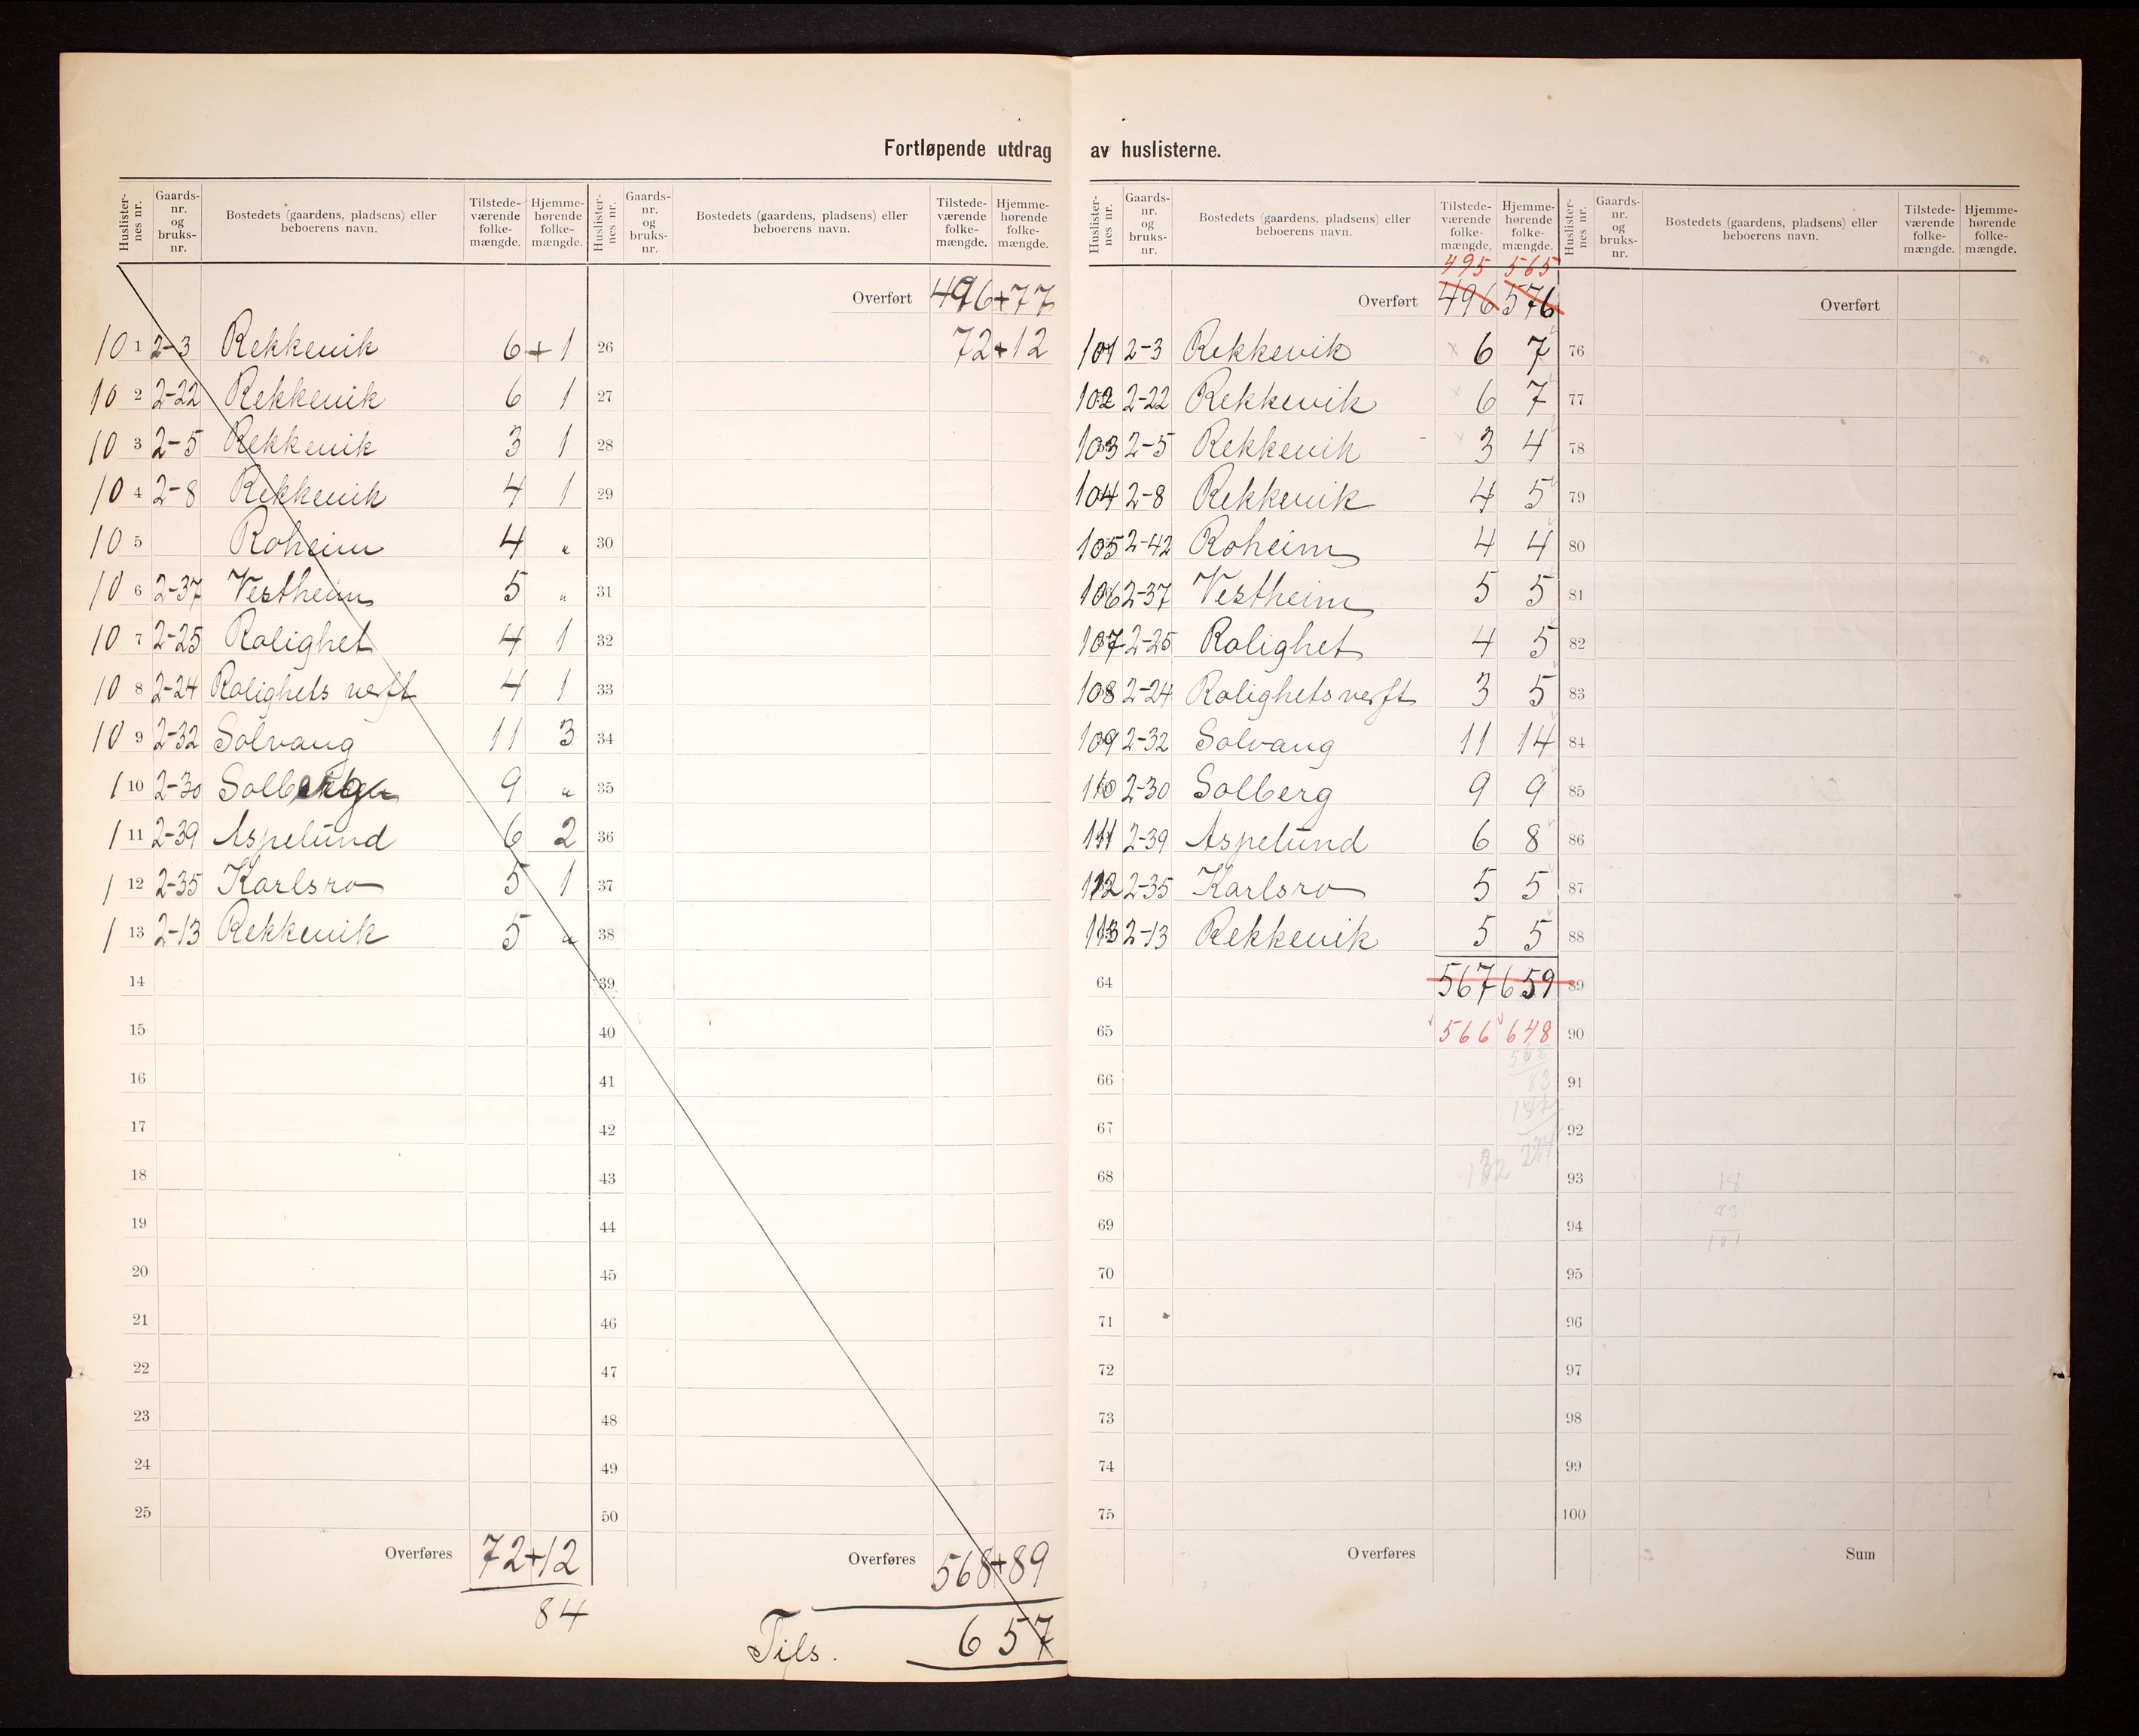 Fortløpende utdrag av huslisterne.
Huslister-nes nr. Gaards-nr. og bruks-nr. Bostedets (gaardens, pladsens) eller beboerens navn. Tilstede-værende folke-mængde. Hjemme-hørende folke-mængde.
10 1 2-3 Rekkevik 6 + 1
10 2 2-22 Rekkevik 6 1
10 3 2-5 Rekkevik 3 1
10 4 2-8 Rekkevik 4 1
10 5 Roheim 4 "
10 6 2-37 Vestheim 5 "
10 7 2-25 Rolighet 4 1
10 8 2-24 Rolighets verft 4 1
10 9 2-32 Solvang 11 3
1 10 2-30 Solberg 9 "
1 11 2-39 Aspelund 6 2
1 12 2-35 Karlsro 5 1
1 13 2-13 Rekkevik 5 "
14
15
16
17
18
19
20
21
22
23
24
25
Overføres 72+12
84
Huslister-nes nr. Gaards-nr. og bruks-nr. Bostedets (gaardens, pladsens) eller beboerens navn. Tilstede-værende folke-mængde. Hjemme-hørende folke-mængde.
Overført 496+77
26 72+12
27
28
29
30
31
32
33
34
35
36
37
38
39
40
41
42
43
44
45
46
47
48
49
50
Overføres 568+89
Tils. 657
Huslister-nes nr. Gaards-nr. og bruks-nr. Bostedets (gaardens, pladsens) eller beboerens navn. Tilstede-værende folke-mængde. Hjemme-hørende folke-mængde.
495 565
Overført 496 576
101 2-3 Rekkevik 6 7
102 2-22 Rekkevik 6 7
103 2-5 Rekkevik 3 4
104 2-8 Rekkevik 4 5
105 2-42 Roheim 4 4
106 2-37 Vestheim 5 5
107 2-25 Rolighet 4 5
108 2-24 Rolighets verft 3 5
109 2-32 Solvang 11 14
110 2-30 Solberg 9 9
111 2-39 Aspelund 6 8
112 2-35 Karlsro 5 5
113 2-13 Rekkevik 5 5
64 567 659
65 566 648
66
83
67
68 132
69
70
71
72
73
74
75
Overføres
Huslister-nes nr. Gaards-nr. og bruks-nr. Bostedets (gaardens, pladsens) eller beboerens navn. Tilstede-værende folke-mængde. Hjemme-hørende folke-mængde.
Overført
76
77
78
79
80
81
82
83
84
85
86
87
88
89
90
91
92
93
94
95
96
97
98
99
100
Sum